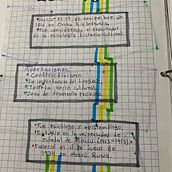 • Nació el 17 de noviembre de
1896 en Orsha, Bielorrusia.
• Fue considerado el precursor
de la psicología histórico cultural
Aportaciones:
• Constructivismo.
• La importancia del lenguaje
• Teoría socio cultural
• Zona de desarrollo próximo
• Fue psicólogo y epistemólogo.
• Estudió en la universidad
Estatal de Moscú (1913-1917).
• Falleció el 11 de junio de
1934 en Moscú, Rusia.